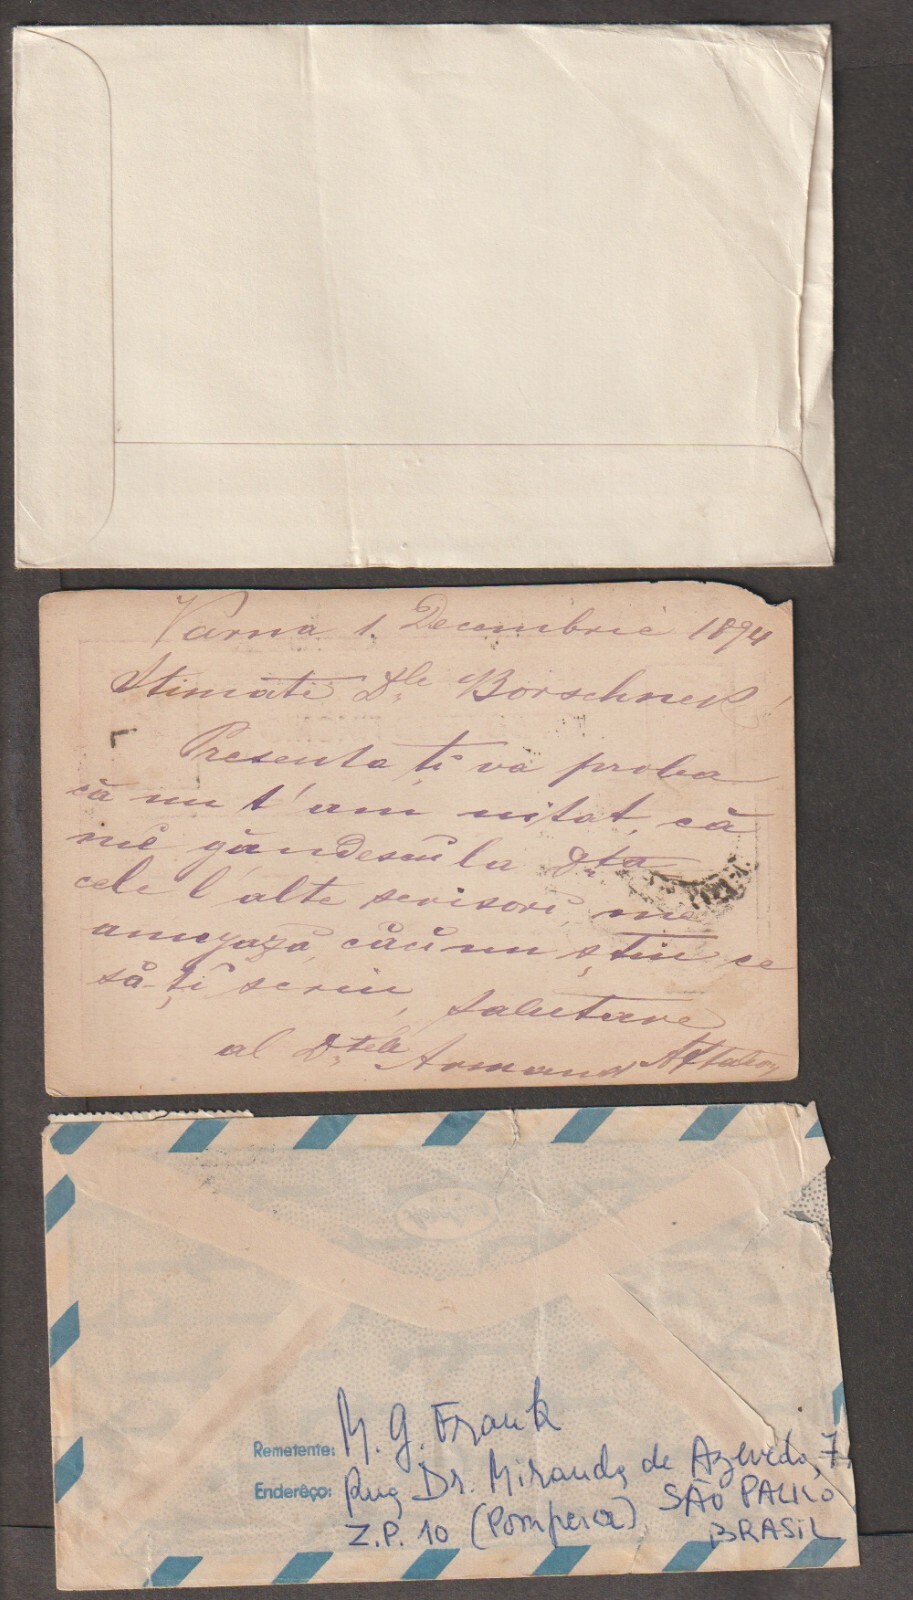 Varna 1. Decembrie 1894
Stimate Dle Borschneck!
Presenta ți va proba
că nu t'am uitat, că
mĕ gândescŭ la Dta
cele l'alte scrisori, me
amegază, căcĭ nu știu ce
să-țĭ scriu, Salutare
al Dtale Armand
Remetente: M. G. Frank
Endereço: Rua Dr. Miranda de Azevedo, 7
Z.P. 10 (Pompeia) SÃO PAULO
BRASIL